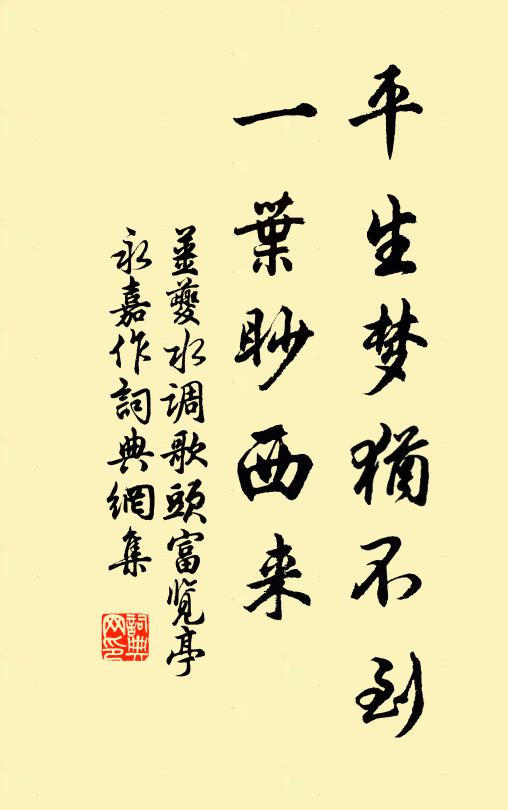 平生梦犹不到
一葉眇西来
姜夔水调歌頭富览亭
永嘉作詞典網集
詞典網印